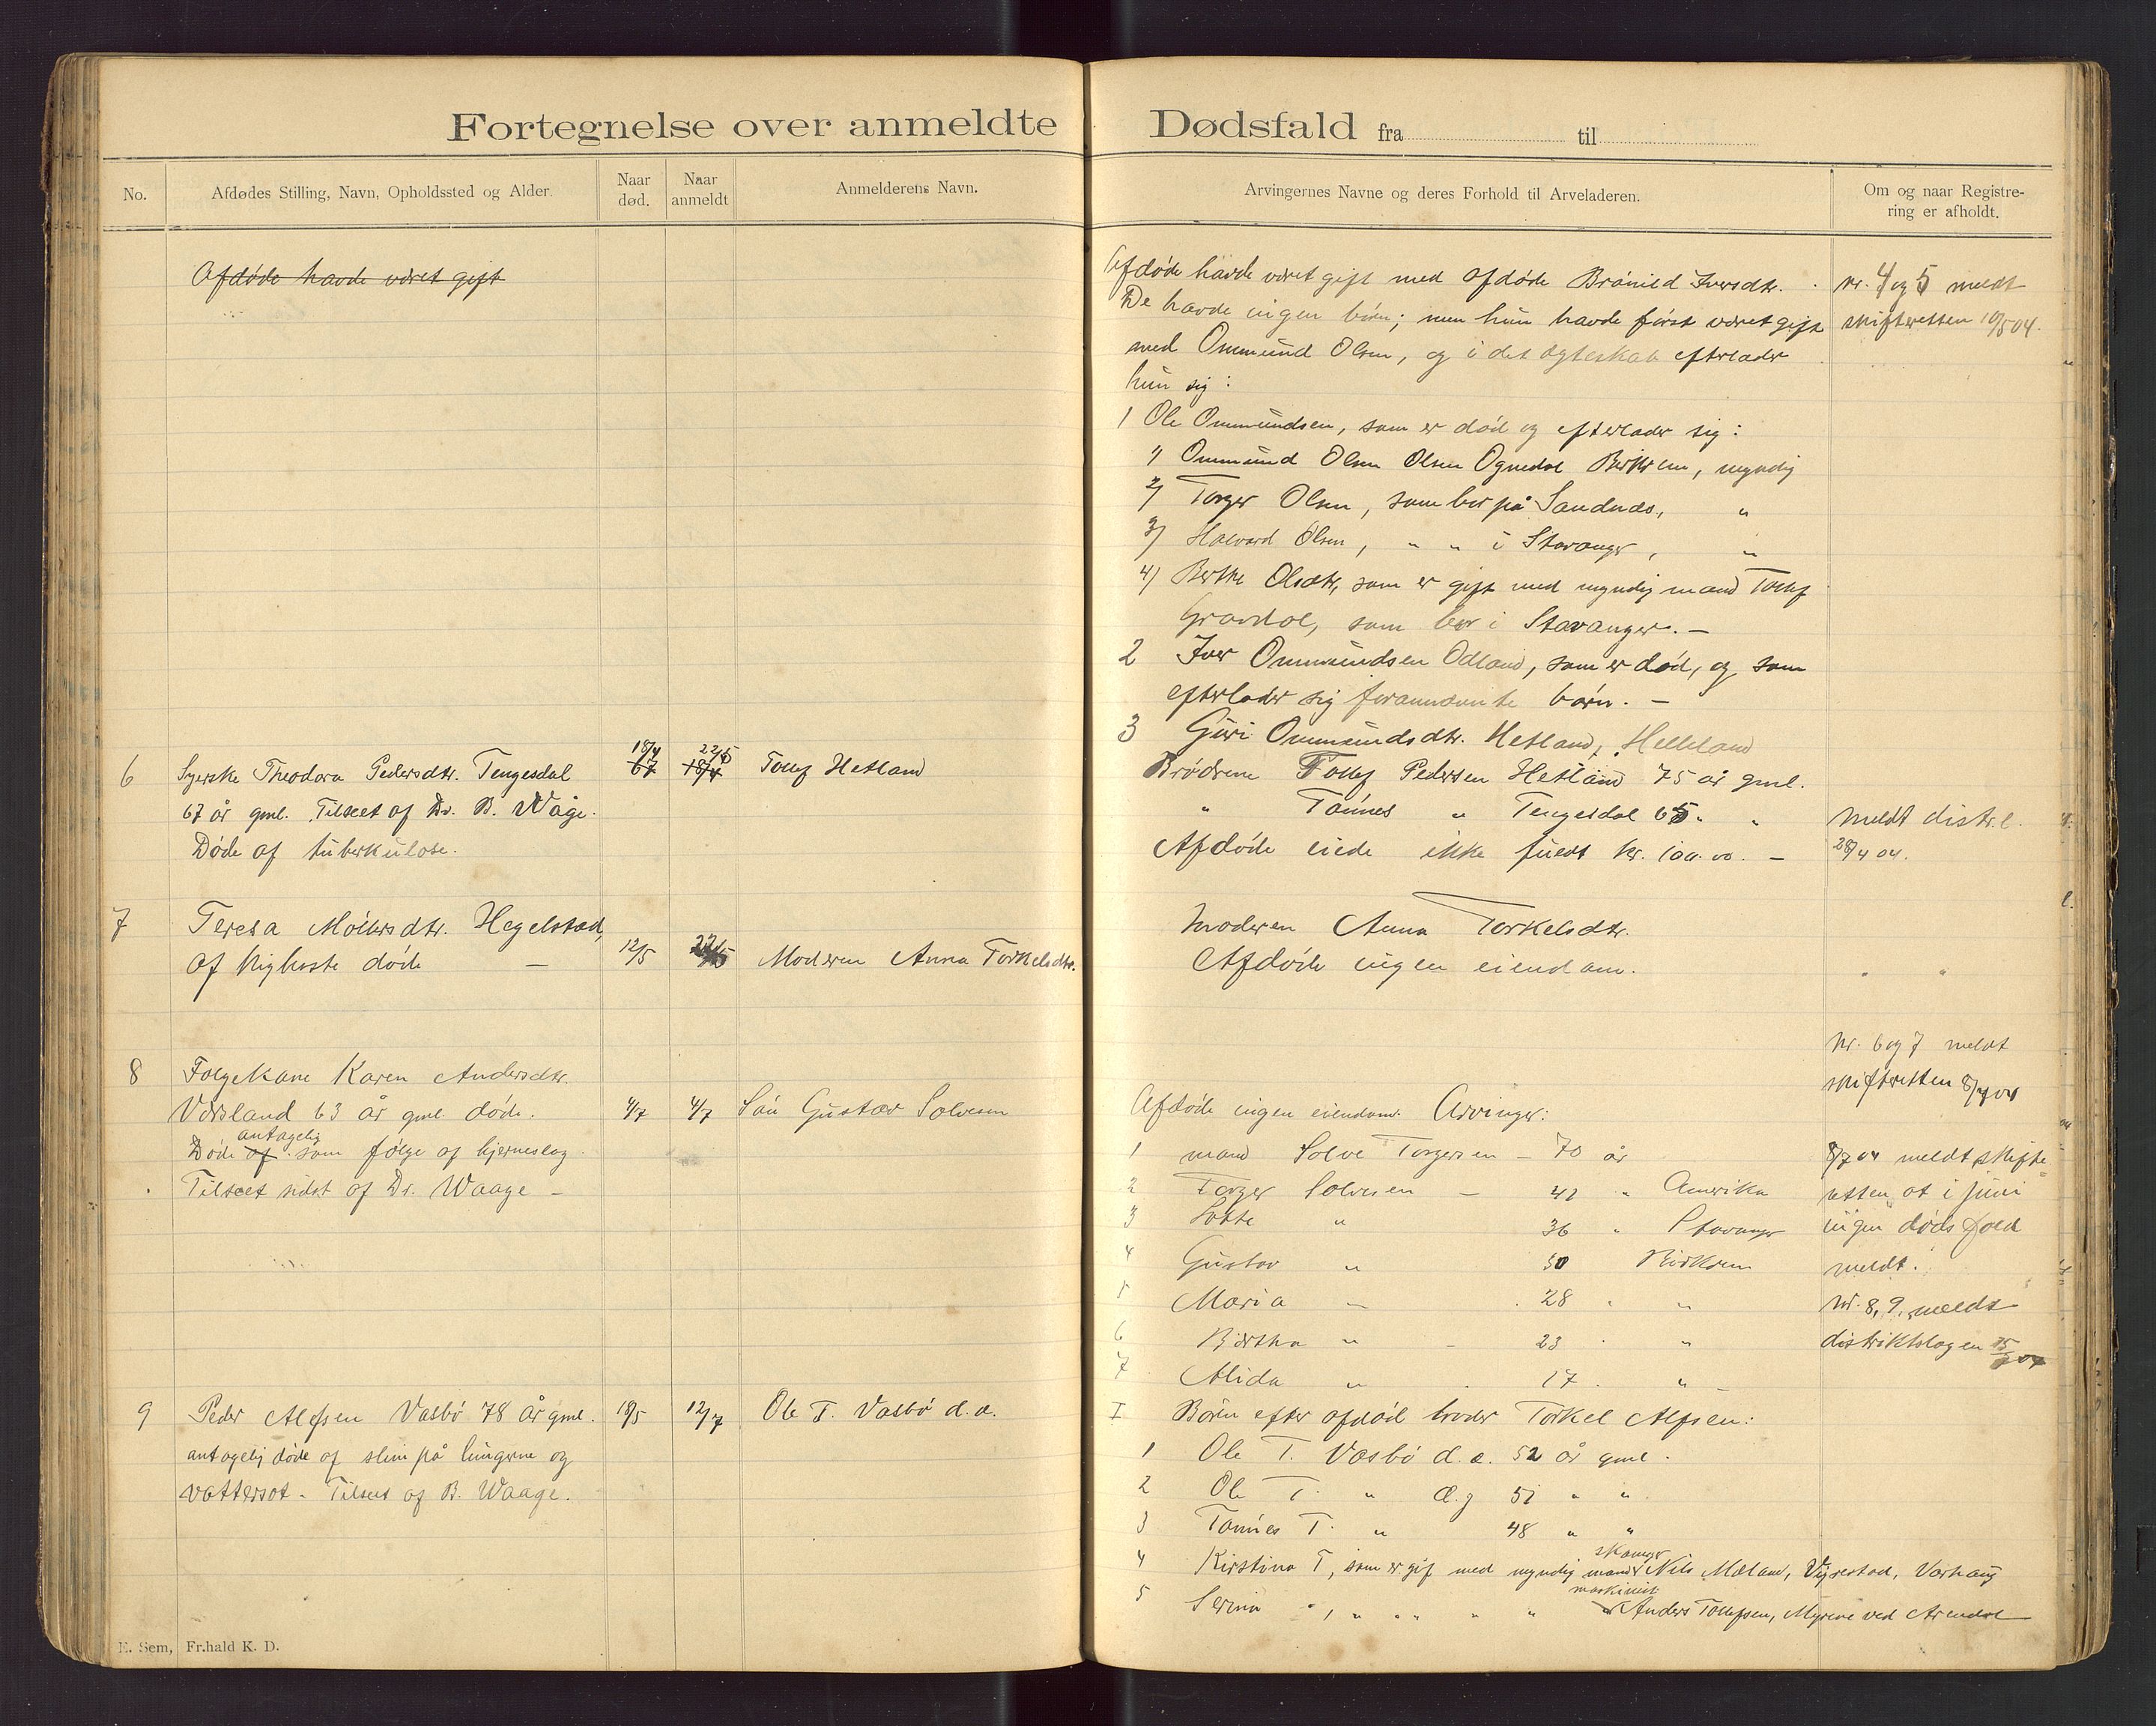 Fortegnelse over anmeldte Dødsfald fra til
No.
Afdødes Stilling, Navn, Opholdssted og Alder.
Naar død.
Naar anmeldt
Anmelderens Navn.
Arvingernes Navne og deres Forhold til Arveladeren.
Om og naar Registre-
ring er afholdt.
Afdøde havde været gift
Afdøde havde været gift med afdøde Brønild Iversdtr.
De havde ingen børn; men hun havde først været gift
med Ommund Olsen, og i det ægteskab efterlader
hun sig:
1 Ole Ommundsen, som er død og efterlader sig:
1) Ommund Olsen Olsen Ognedal Birkrem, myndig
2) Torger Olsen, som bor på Sandnæs, "
3) Halvard Olsen, " " i Stavanger, "
4) Berthe Olsdtr, som er gift med myndig mand Tollef
Gravdal, som bor i Stavanger. –
2 Iver Ommundsen Ødland, som er død, og som
efterlader sig forannævnte børn. –
3 Guri Ommundsdtr. Hetland, Helleland
nr. 4 og 5 meldt
skifteretten 10/5 04.
6 Syerske Theodora Pedersdtr. Tengesdal
67 år gml. Tilseet af Dr. B. Waage.
Døde af tuberkulose.
18/4
22/5
18/4
Tollef Hetland
Brødrene Tollef Pedersen Hetland 75 år gml.
" Tønnes " Tengesdal 65 " "
Afdøde eiede ikke fuldt kr. 100.00. –
meldt distr.l.
28/4 04.
7 Teresa Møllersdtr. Hegelstad,
af kighoste døde –
12/5
22/5
Moderen Anna Torkelsdtr.
Moderen Anna Torkelsdtr.
Afdøde ingen eiendom.
Nr. 6 og 7 meldt
skifteretten 8/7 04
8 Folgekone Karen Andersdtr.
Vårsland 63 år gml. døde.
Døde af antagelig som følge af hjerneslag
Tilseet sidst af Dr. Waage –
4/7
4/7
Søn Gustav Solvesen
Afdøde ingen eiendom. Arvinger:
1 mand Solve Torgersen – 70 år
2 Torger Solvesen – 42 " Amerika
3 Lotte " 36 " Stavanger
4 Gustav " 30 Birkrem
5 Maria " 28 " "
6 Bertha " – 23 " "
7 Alida " 17 " "
8/7 04 meldt skifte-
retten at i juni
ingen dødsfald
meldt.
Nr. 8, 9, meldt
distriktslægen 15/7 04
9 Peder Alfsen Vasbø 78 år gml.
antagelig døde af slim på lungerne og
vattersot – Tilseet af B. Waage.
18/5
12/7
Ole T. Vasbø d.æ.
I Børn efter afdød broder Torkel Alfsen:
1 Ole T. Vasbø d.æ. 52 år gml.
2 Ole T. " d.y 51 " "
3 Tønnes T. " 48 " "
4 Kirstina T, som er gif med myndig mand skomager Nils Mæland, Vigrestad, Varhaug
5 Serina ", " " " " " maskinist Anders Tollefsen, Myrene ved Arendal
E. Sem, Fr.hald K. D.